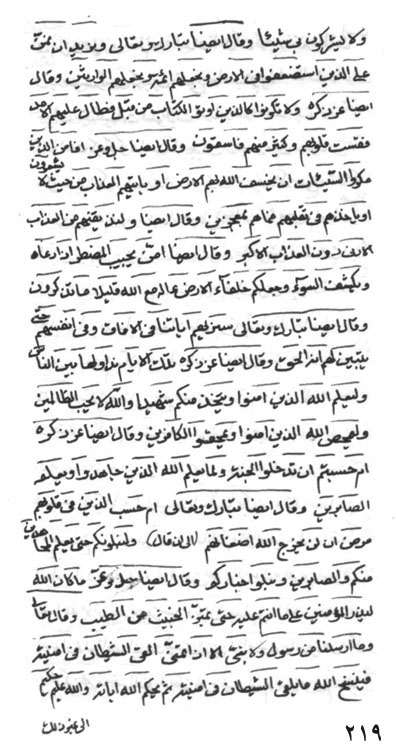 ولا يشركون بي شيئا وقال ايضا تبارك وتعالى ويزيد ان نمن
على الذين استضعفوا في الارض ونجعلهم ائمة ونجعلهم الوارثين وقال
ايضا عز ذكره ولا تكونوا كالذين اوتوا الكتاب من قبل فطال عليهم الامد
فقست قلوبهم وكثير منهم فاسقون وقال ايضا جل وعز افامن الذين
مكروا السيئات ان يخسف الله بهم الارض او ياتيهم العذاب من حيث لا يشعرون
او ياخذهم في تقلبهم فما هم بمعجزين وقال ايضا ولنذيقنهم من العذاب
الادنى دون العذاب الاكبر وقال ايضا امن يجيب المضطر اذا دعاه
ويكشف السوء ويجعلكم خلفاء الارض ءاله مع الله قليلا ما تذكرون
وقال ايضا تبارك وتعالى سنريهم اياتنا في الافاق وفي انفسهم حتى
يتبين لهم انه الحق وقال ايضا عز ذكره وتلك الايام نداولها بين الناس
وليعلم الله الذين امنوا ويتخذ منكم شهداء والله لا يحب الظالمين
وليمحص الله الذين امنوا ويمحق الكافرين وقال ايضا عز ذكره
ام حسبتم ان تدخلوا الجنة ولما يعلم الله الذين جاهدوا ويعلم
الصابرين وقال ايضا تبارك وتعالى ام حسب الذين في قلوبهم
مرض ان لن يخرج الله اضغانهم (الى ان قال) ولنبلونكم حتى نعلم المجاهدين
منكم والصابرين ونبلوا اخباركم وقال ايضا جل وعز ما كان الله
ليذر المؤمنين على ما انتم عليه حتى يميز الخبيث من الطيب وقال تعالى
وما ارسلنا من رسول ولا نبي الا اذا تمنى القى الشيطان في امنيته
فينسخ الله ما يلقي الشيطان في امنيته ثم يحكم الله اياته والله عليم حكيم
الى غير ذلك
٢١٩